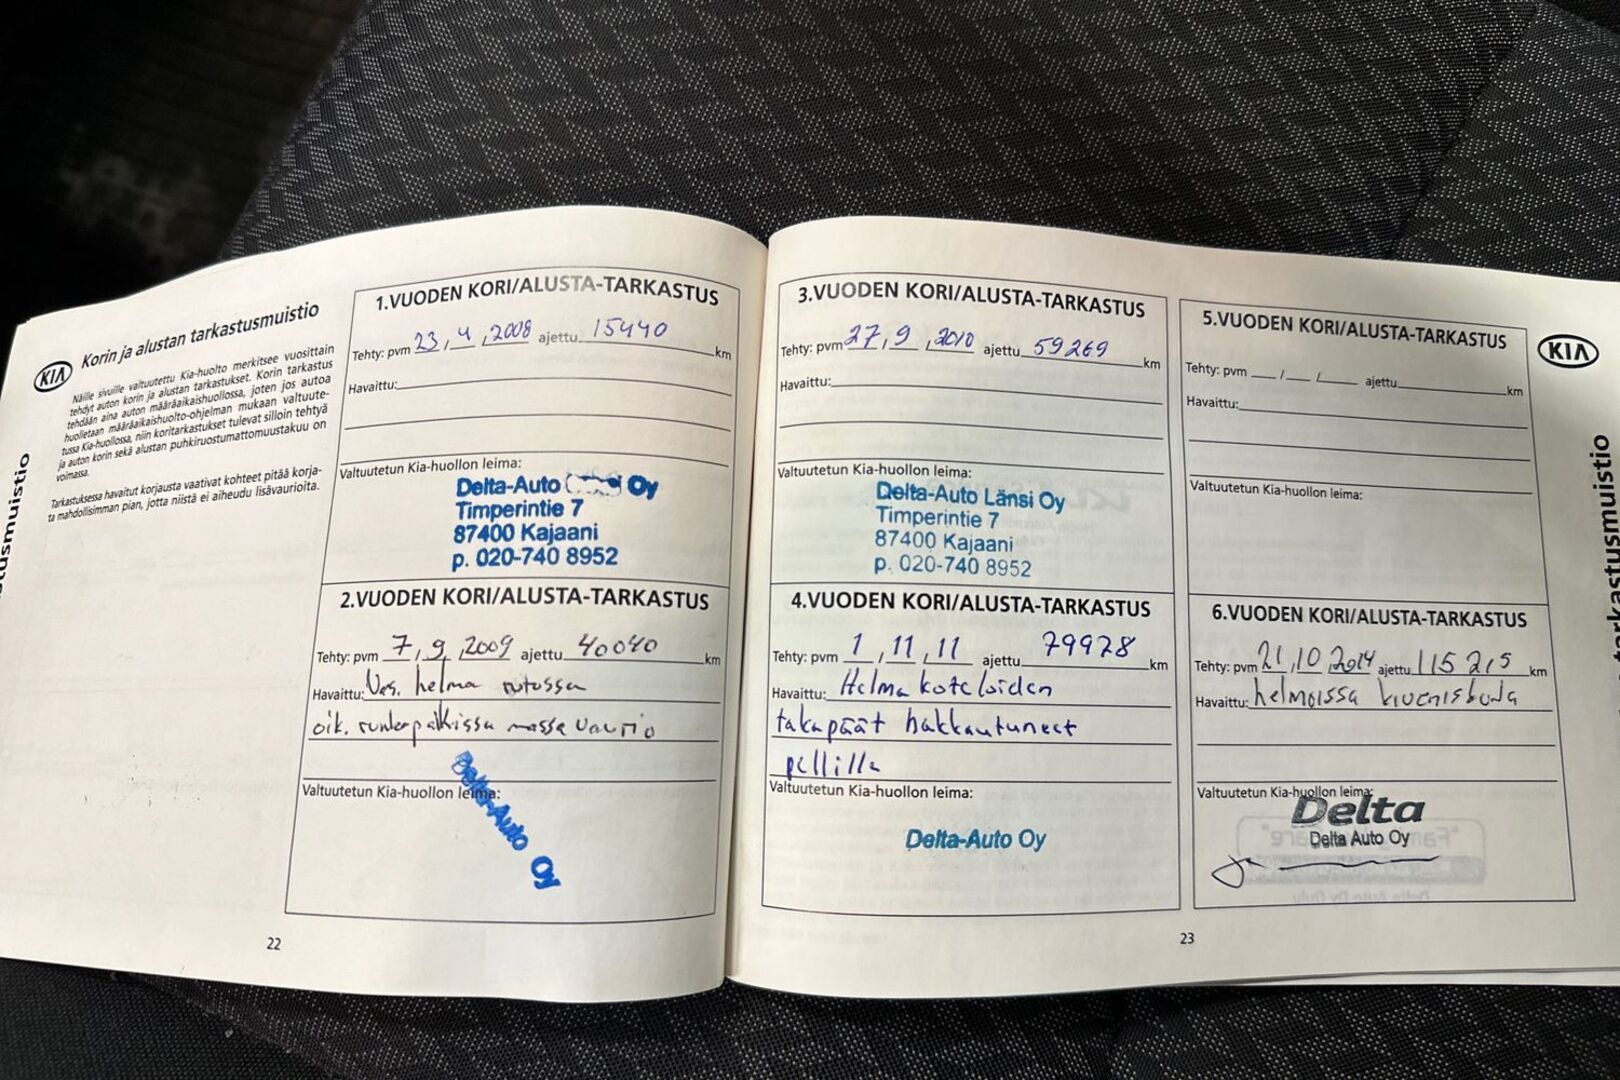 KIA
Korin ja alustan tarkastusmuistio
Näille sivuille valtuutettu Kia-huolto merkitsee vuosittain
tehdyt auton korin ja alustan tarkastukset. Korin tarkastus
tehdään aina auton määräaikaishuollossa, joten jos autoa
huolletaan määräaikaishuolto-ohjelman mukaan valtuute-
tussa Kia-huollossa, niin koritarkastukset tulevat silloin tehtyä
ja auton korin sekä alustan puhkiruostumattomuustakuu on
voimassa.
Tarkastuksessa havaitut korjausta vaativat kohteet pitää korja-
ta mahdollisimman pian, jotta niistä ei aiheudu lisävaurioita.
1.VUODEN KORI/ALUSTA-TARKASTUS
Tehty: pvm 23, 4, 2008 ajettu 15440 km
Havaittu:
Valtuutetun Kia-huollon leima:
Delta-Auto Oy
Timperintie 7
87400 Kajaani
p. 020-740 8952
2.VUODEN KORI/ALUSTA-TARKASTUS
Tehty: pvm 7, 9, 2009 ajettu 40040 km
Havaittu: Vas. helma rutussa
oik. runkopalkissa massa vaurio
Valtuutetun Kia-huollon leima:
Delta-Auto Oy
22
3.VUODEN KORI/ALUSTA-TARKASTUS
Tehty: pvm 27, 9, 2010 ajettu 59269 km
Havaittu:
Valtuutetun Kia-huollon leima:
Delta-Auto Länsi Oy
Timperintie 7
87400 Kajaani
p. 020-740 8952
4.VUODEN KORI/ALUSTA-TARKASTUS
Tehty: pvm 1, 11, 11 ajettu 79928 km
Havaittu: Helma koteloiden
takapäät hakkautuneet
pellillä
Valtuutetun Kia-huollon leima:
Delta-Auto Oy
5.VUODEN KORI/ALUSTA-TARKASTUS
Tehty: pvm / / ajettu km
Havaittu:
Valtuutetun Kia-huollon leima:
6.VUODEN KORI/ALUSTA-TARKASTUS
Tehty: pvm 21, 10, 2014 ajettu 115215 km
Havaittu: helmoissa kiveniskuja
Valtuutetun Kia-huollon leima:
Delta
Delta Auto Oy
23
KIA
tarkastusmuistio